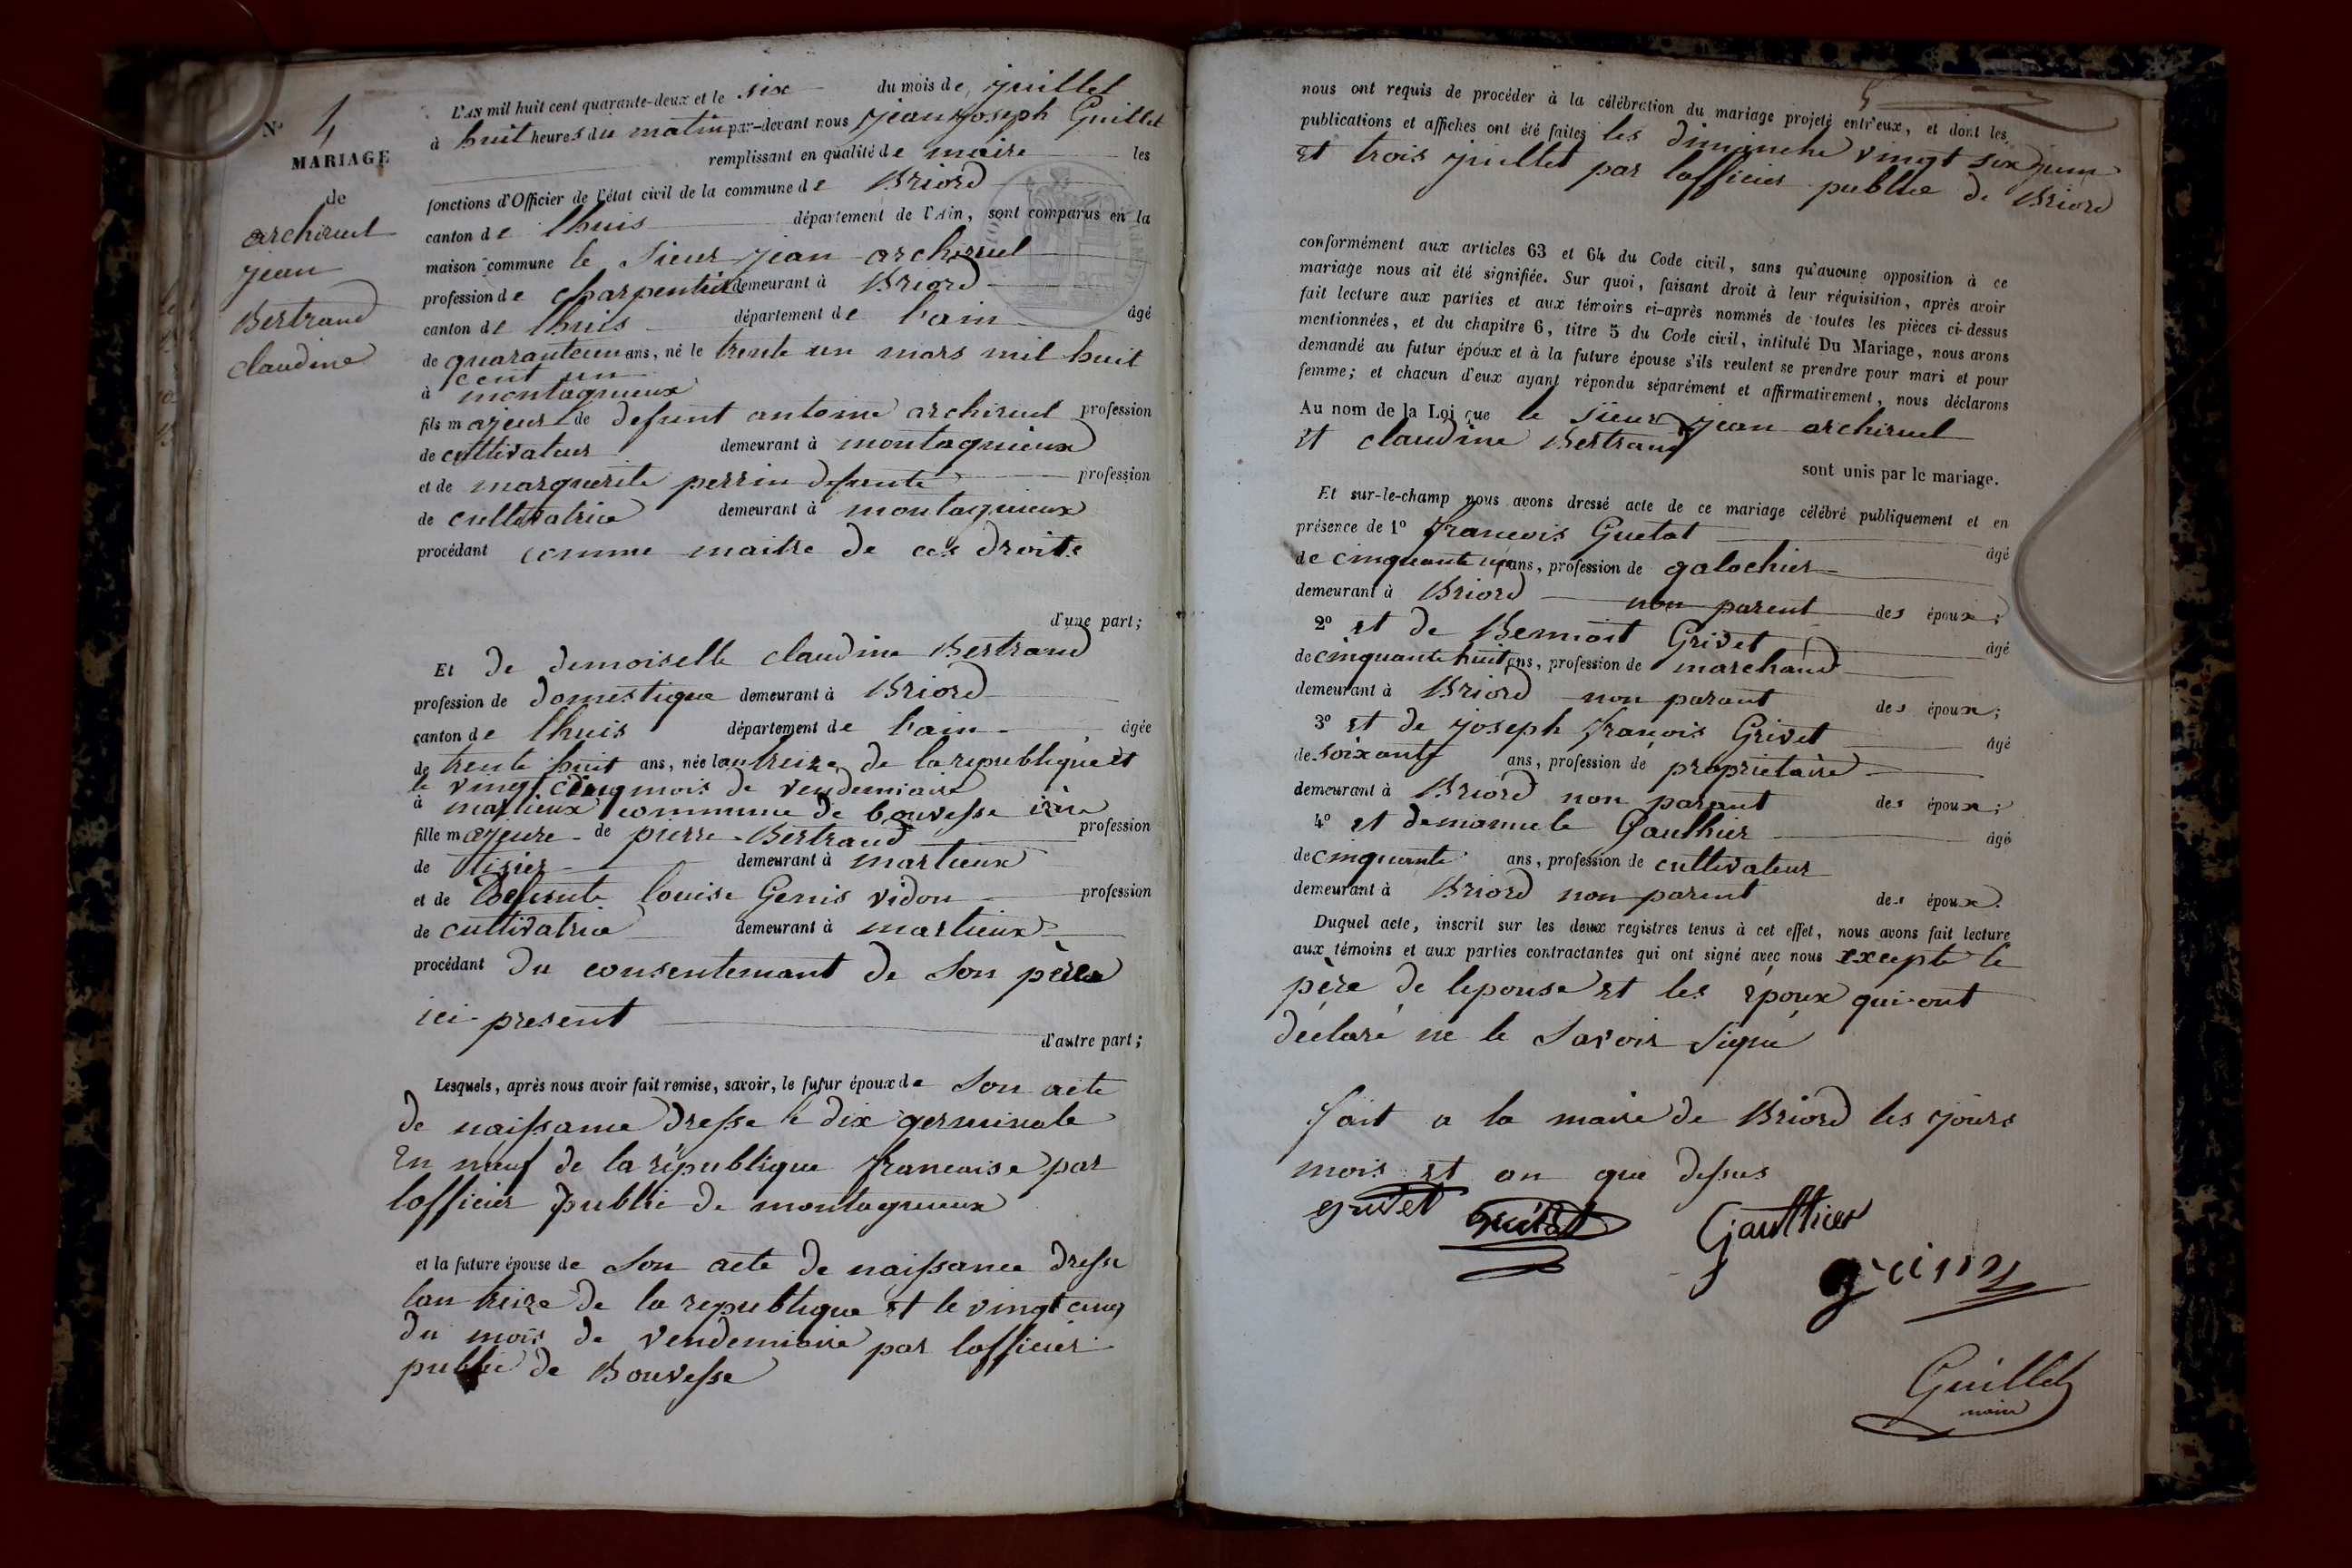 N° 4
MARIAGE
de
archiruel
jean
Bertrand
claudine
L'AN mil huit cent quarante-deux et le six du mois de juillet
à huit heures du matin par-devant nous jean joseph Guillet
remplissant en qualité de maire les
fonctions d'Officier de l'état civil de la commune de Briord
canton de lhuis département de l'Ain, sont comparus en la
maison commune le Sieur jean archiruel
profession de charpentier demeurant à Briord
canton de lhuis département de l'ain âgé
de quaranteun ans, né le trente un mars mil huit
cent un
à montagnieux
fils majeur de defunt antoine archiruel profession
de cultivateur demeurant à montagnieux
et de marguerite perrin defunte profession
de cultivatrice demeurant à montagnieux
procédant comme maitre de ces droits
d'une part;
Et de demoiselle claudine Bertrand
profession de domestique demeurant à Briord
canton de lhuis département de l'ain âgée
de trente huit ans, née lan treize de la republique et
le vingt cinq mois de vendemiaire
à marlieux commune de bouvesse isère
fille majeure de pierre Bertrand profession
de tisier demeurant à marlieux
et de defunte louise Genis vidon profession
de cultivatrice demeurant à marlieux
procédant du consentemant de son père
ici present
d'autre part;
Lesquels, après nous avoir fait remise, savoir, le futur époux de Son acte
de naissance dresse le dix germinale
en neuf de la république francaise par
lofficier public de montagnieux
et la future épouse de Son acte de naissance dresse
lan treize de la republique et le vingt cinq
du mois de vendemiaire par lofficier
public de Bouvesse
nous ont requis de procéder à la célébration du mariage projeté entr'eux, et dont les
publications et affiches ont été faites les dimanche vingt six juin
et trois juillet par lofficier public de Briord
conformément aux articles 63 et 64 du Code civil, sans qu'aucune opposition à ce
mariage nous ait été signifiée. Sur quoi, faisant droit à leur réquisition, après avoir
fait lecture aux parties et aux témoins ci-après nommés de toutes les pièces ci-dessus
mentionnées, et du chapitre 6, titre 5 du Code civil, intitulé Du Mariage, nous avons
demandé au futur époux et à la future épouse s'ils veulent se prendre pour mari et pour
femme; et chacun d'eux ayant répondu séparément et affirmativement, nous déclarons
Au nom de la Loi que le Sieur jean archiruel
et claudine Bertrand
sont unis par le mariage.
Et sur-le-champ nous avons dressé acte de ce mariage célébré publiquement et en
présence de 1° francois Guetat âgé
de cinquante un ans, profession de galochier
demeurant à Briord non parent des époux;
2° et de Bennoit Grivet âgé
de cinquante huit ans, profession de marchand
demeurant à Briord non parant des époux;
3° et de joseph françois Grivet âgé
de soixante ans, profession de proprietaire
demeurant à Briord non parant des époux;
4° et demanuele Gauthier âgé
de cinquante ans, profession de cultivateur
demeurant à Briord non parent des époux.
Duquel acte, inscrit sur les deux registres tenus à cet effet, nous avons fait lecture
aux témoins et aux parties contractantes qui ont signé avec nous excepte le
père de lepouse et les époux qui ont
déclaré ne le Savoir Signé
fait a la maire de Briord les jours
mois et an que dessus
grivet Guétat Gautthier
Guillet
maire